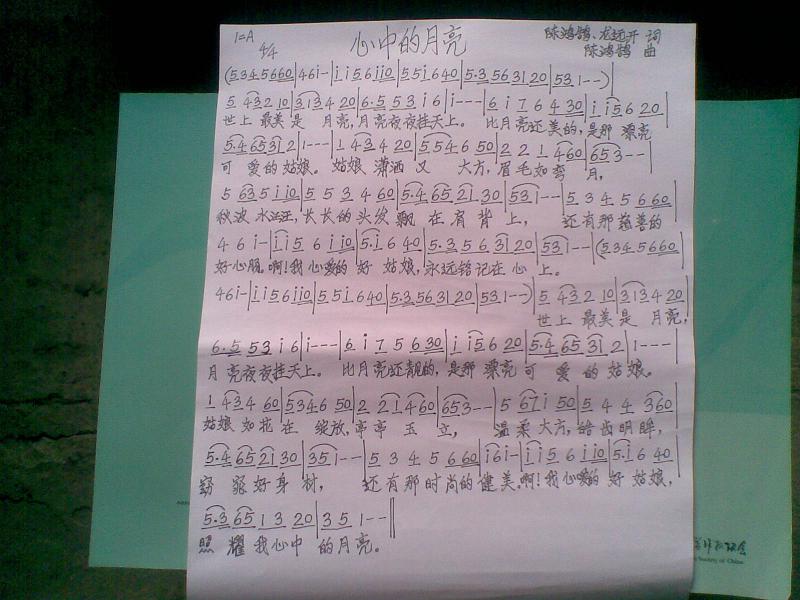 1=A 4/4 心中的月亮 陈鸿鹄、龙远开 词
陈鸿鹄 曲
(5 3 4 5 6 6 0|4 6 i -|i i 5 6 i i 0|5 5 i 6 4 0|5·3 5 6 3 1 2 0|5 3 1 - -)|
5 4 3 2 1 0|3 1 3 4 2 0|6·5 5 3 i 6|i - - -|6 i 7 6 4 3 0|i i 5 6 2 0|
世上 最美是 月亮,月亮夜夜挂天上。 比月亮还美的,是那 漂亮
5·4 6 5 3 1 2|1 - - -|1 4 3 4 2 0|5 5 4 6 5 0|2 2 1 4 6 0|6 5 3 - -|
可 爱的姑娘。 姑娘 潇洒 又 大方,眉毛如弯 月,
5 6 3 5 i i 0|5 5 3 4 6 0|5·4 6 5 2 1 3 0|5 3 1 - -|5 3 4 5 6 6 0|
秋波 水汪汪,长长的头发飘 在肩背 上, 还有那慈善的
4 6 i -|i i 5 6 i i 0|5·i 6 4 0|5·3 5 6 3 1 2 0|5 3 i - -|(5 3 4 5 6 6 0
好心肠。啊!我心爱的 好 姑娘,永远铭记在心 上。
4 6 i -|i i 5 6 i i 0|5 5 i 6 4 0|5·3 5 6 3 1 2 0|5 3 1 - -)|5 4 3 2 1 0|3 1 3 4 2 0|
世上 最美是 月亮,
6·5 5 3 i 6|i - - -|6 i 7 5 6 3 0|i i 5 6 2 0|5·4 6 5 3 1 2|1 - - -|
月 亮夜夜挂天上。 比月亮还靓的,是那 漂亮可 爱的姑娘。
1 4 3 4 6 0|5 3 4 6 5 0|2 2 1 4 6 0|6 5 3 - -|5 6 7 i 5 0|5 4 4 3 6 0|
姑娘 如花在 绽放,亭亭 玉 立, 温柔大方,皓齿明眸,
5·4 6 5 2 1 3 0|3 5 i - -|5 3 4 5 6 6 0|i 6 i -|i i 5 6 i i 0|5·i 6 4 0|
窈 窕好身 材, 还有那时尚的健美。啊!我心爱的 好 姑娘,
5·3 6 5 1 3 2 0|3 5 1 - -‖
照 耀我心中 的月亮。
Society of China